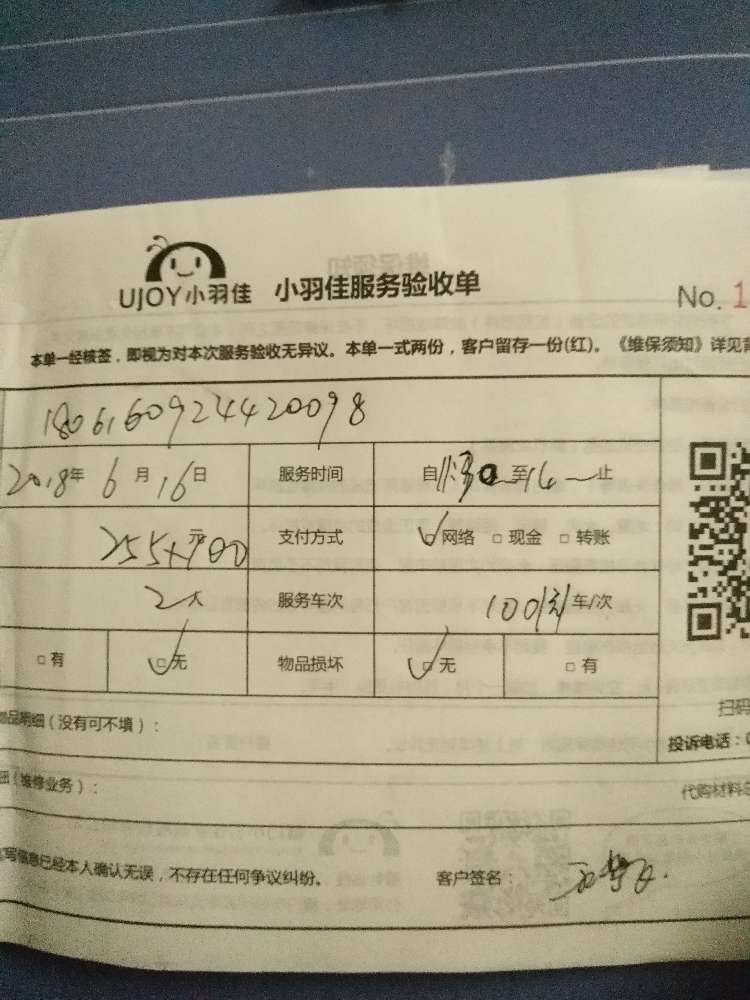 UJOY小羽佳 小羽佳服务验收单
No. 1
本单一经核签，即视为对本次服务验收无异议。本单一式两份，客户留存一份(红)。《维保须知》详见背
1806160924420098
2018年 6月16日 服务时间 自 至14 止
255+ 元 支付方式 ☑网络 □现金 □转账
2人 服务车次 100 车/次
□有 ☑无 物品损坏 ☑无 □有
物品明细（没有可不填）：
扫码
投诉电话：0
细（维修业务）：
代购材料总
写信息已经本人确认无误，不存在任何争议纠纷。 客户签名：